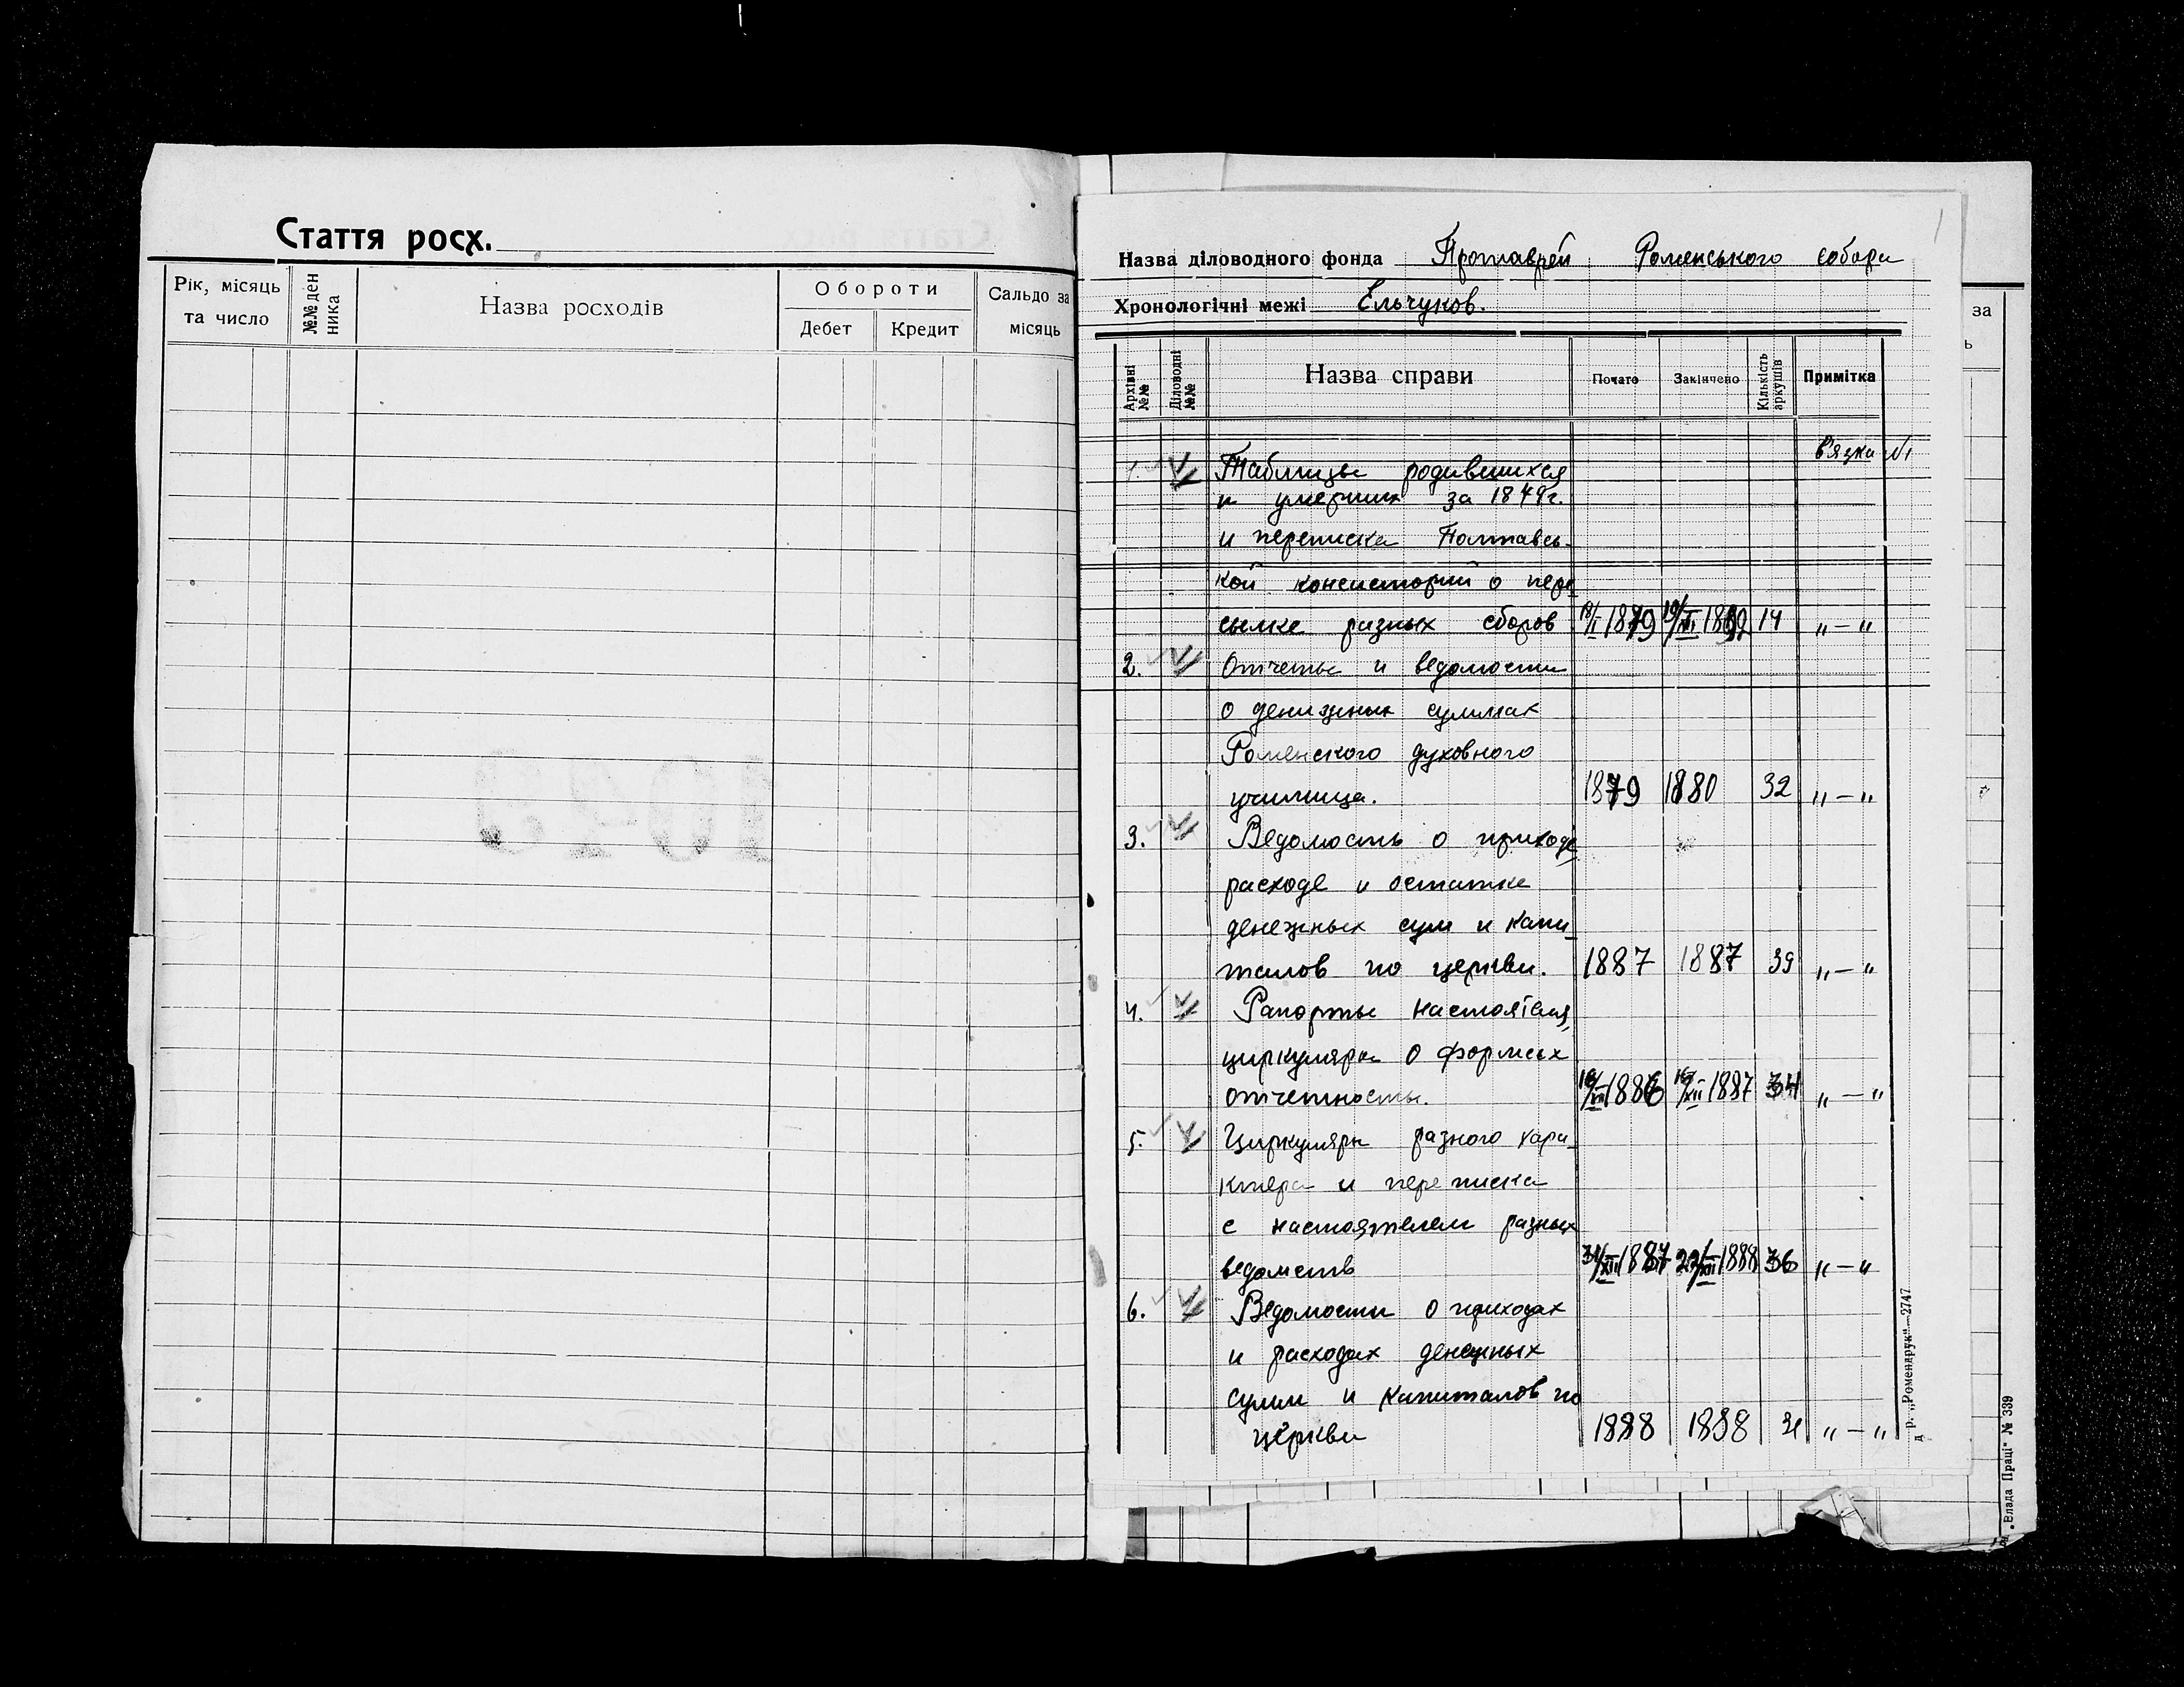 Стаття росх.
Рік, місяць та число
№№ ден ника
Назва росходів
Обороти
Дебет
Кредит
Сальдо за місяць
Назва діловодного фонда Протаврей Роменського собора
Хронологічні межі Ельчуков.
Архівні №№
Діловодні №№
Назва справи
Почато
Закінчено
Кількість аркушів
Примітка
в'язка №1
1. Таблицы родившихся
и умерших за 1849г.
и переписка Полтавсь-
кой консисторий о пере
сылке разных сборов 1879 14 „—„
2. Отчеты и ведомости
о денижных суммах
Роменского духовного
училища. 1879 1880 32 „—„
3. Ведомость о приходе
расходе и остатке
денежных сум и капи-
талов по церкви. 1887 1887 39 „—„
4. Рапорты настоятеля,
циркуляры о формах
отчетности. 1886 1887 34 „—„
5. Циркуляры разного хара-
ктера и переписка
с настоятелем разных
ведомств 1887 1888 36 „—„
6. Ведомости о приходах
и расходах денежных
сумм и капиталов по
церкви 1888 1888 „—„
д р. „Ромендрук".—2747
„Влада Праці" № 339
за
ь